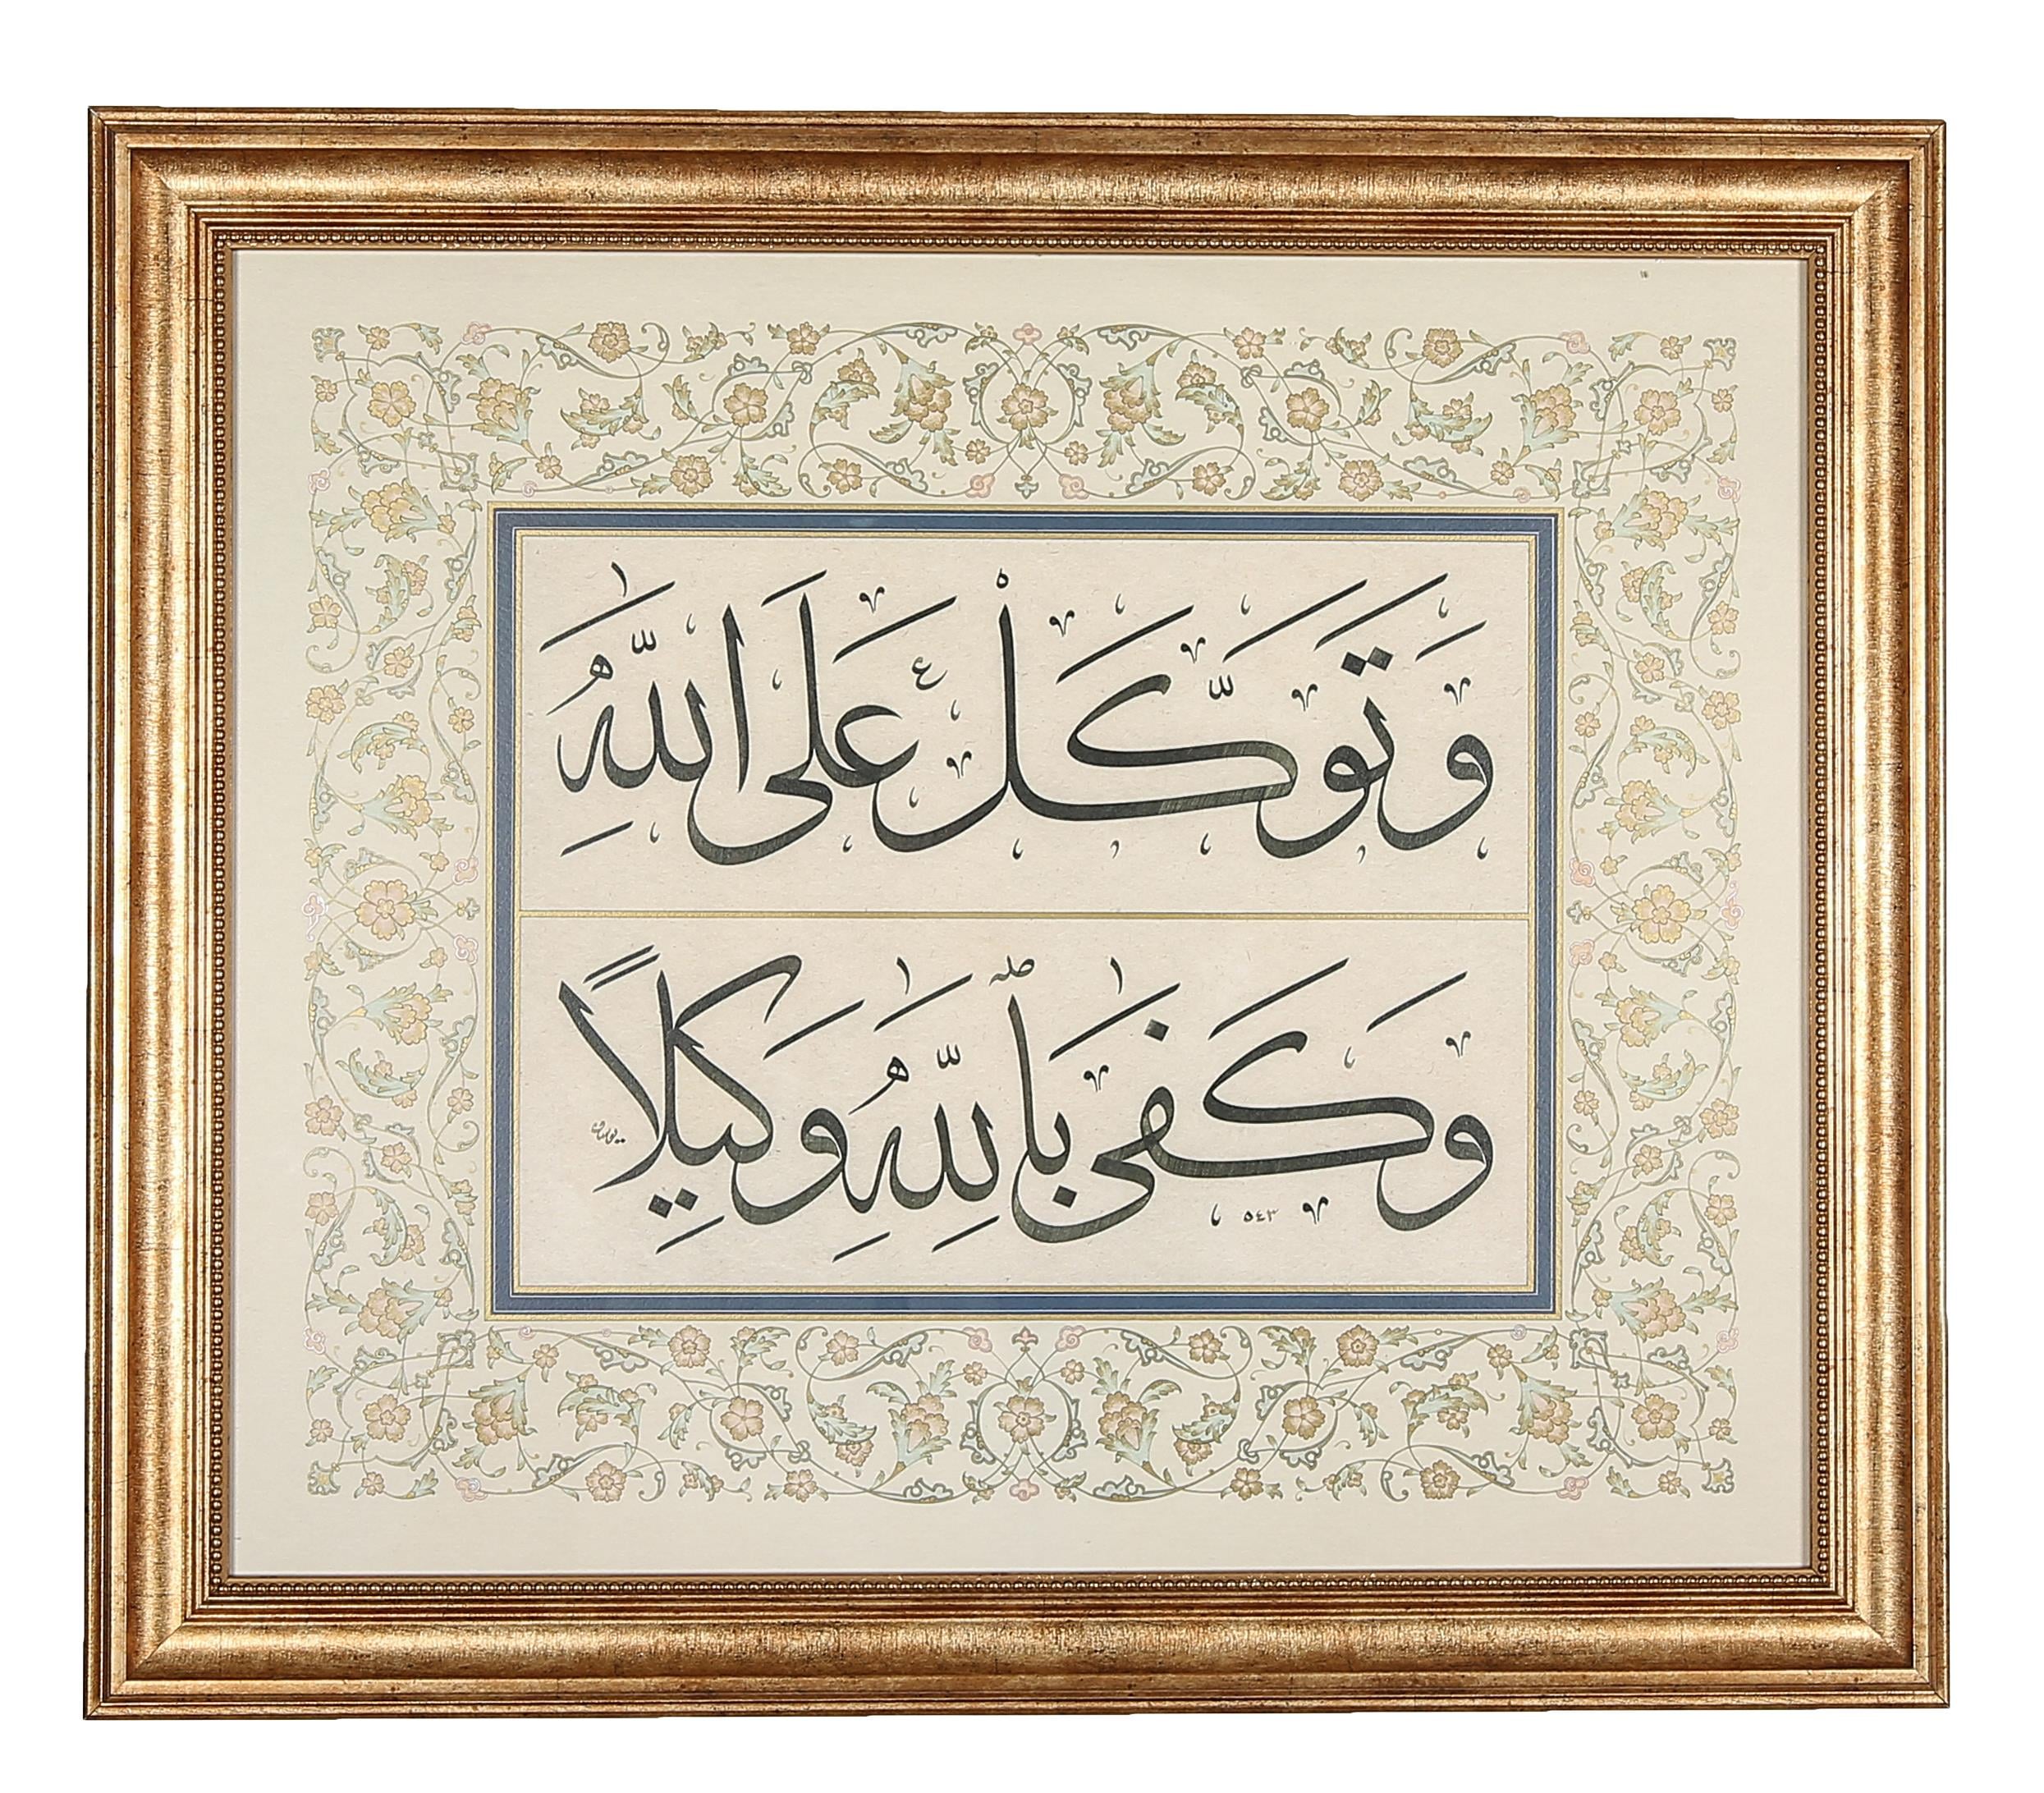 وَتَوَكَّلْ عَلَى اللَّهِ
وَكَفَى بِاللَّهِ وَكِيلًا
٥٤٣